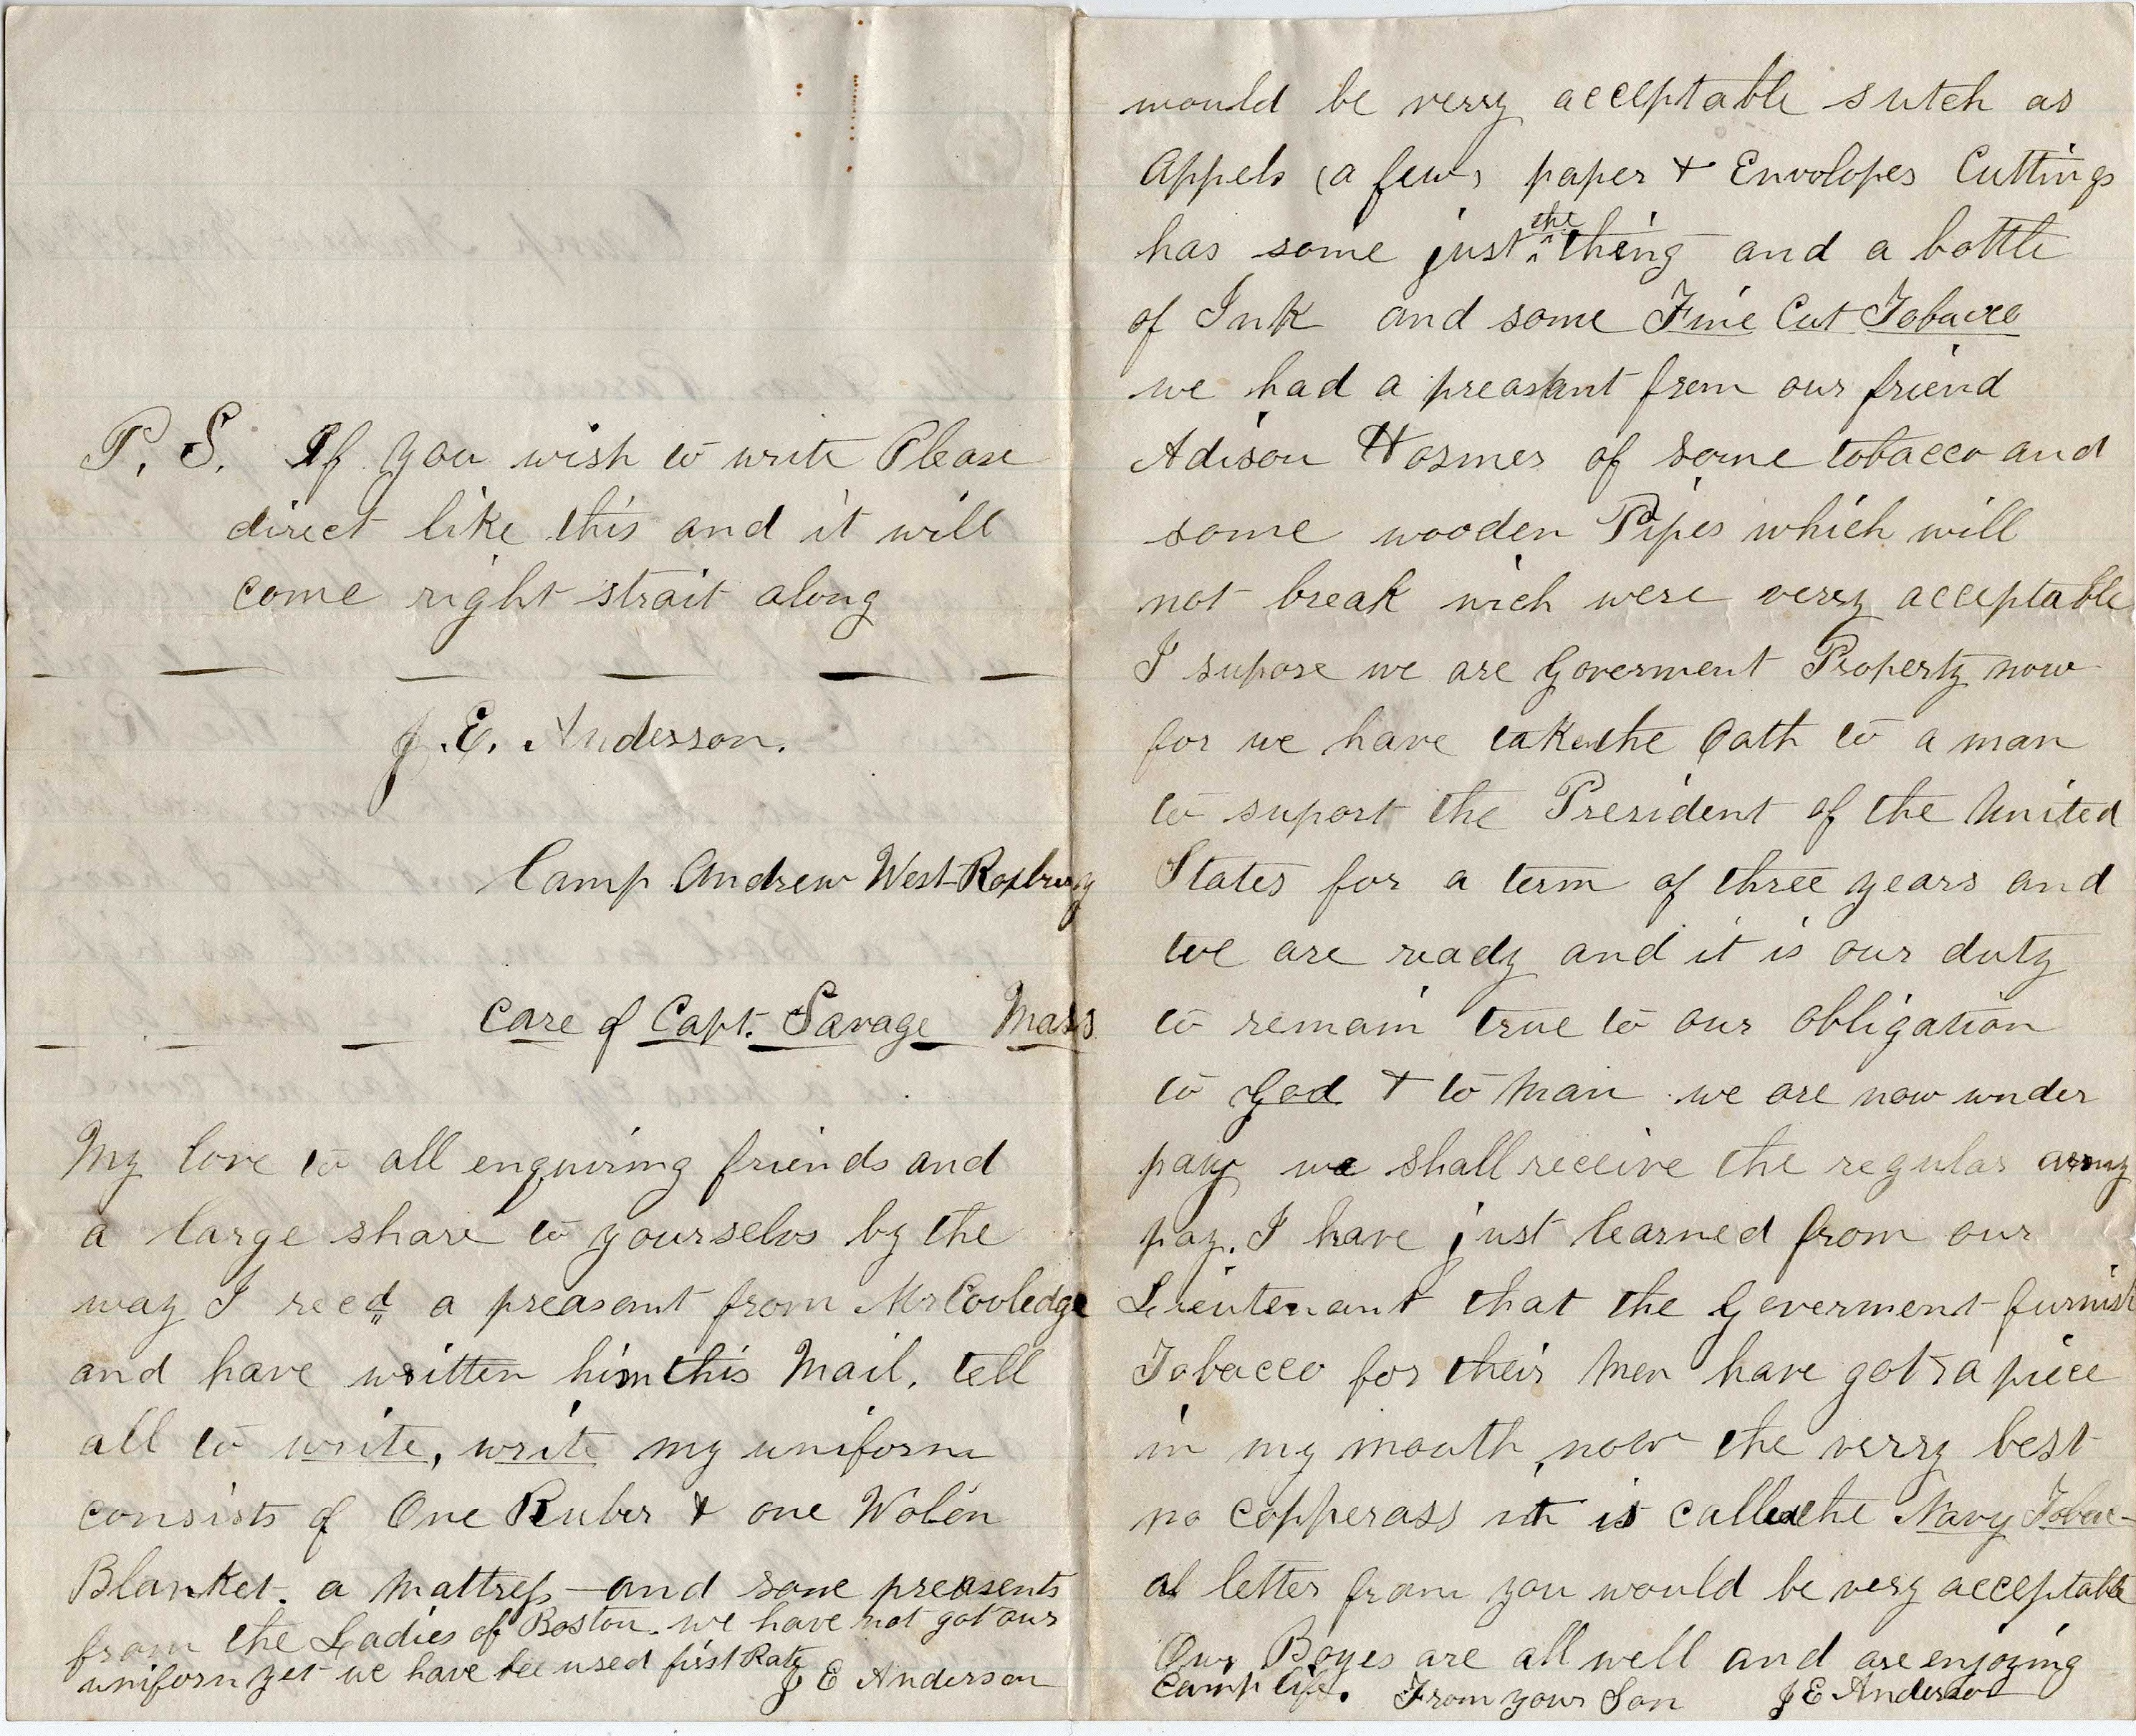 P. S. If you wish to write Please
direct like this and it will
come right strait along
J. E. Anderson.
Camp Andrew West-Roxbury
Care of Capt. Savage Mass
My love to all enquiring friends and
a large share to yourselvs by the
way I recd a preasant from Mr Cooledge
and have written him this Mail, tell
all to write, write my uniform
consists of One Ruber & one Wolen
Blanket. a Mattress and some preasents
from the Ladies of Boston. we have not got our
uniform yet we have bee used first Rate
J E Anderson
would be verry acceptable sutch as
Appels (a few) paper & Envolopes Cuttings
has some just the thing and a bottle
of Ink and some Fine Cut Tobacco
we had a preasant from our friend
Adison Hosmer of some tobacco and
some wooden Pipes which will
not break wich were verry acceptable
I supose we are Goverment Property now
for we have taken the Oath to a man
to suport the President of the United
States for a term of three years and
we are ready and it is our duty
to remain true to our obligation
to God & to Man we are now under
pay we shall receive the regular army
pay. I have just learned from our
Lieutenant that the Goverment furnish
Tobacco for their Men have got a piece
in my mouth now the verry best
no copperass it is called the Navy Tobac-
a letter from you would be very acceptable
Our Boyes are all well and are enjoying
Camp life. From your Son J E Anderson